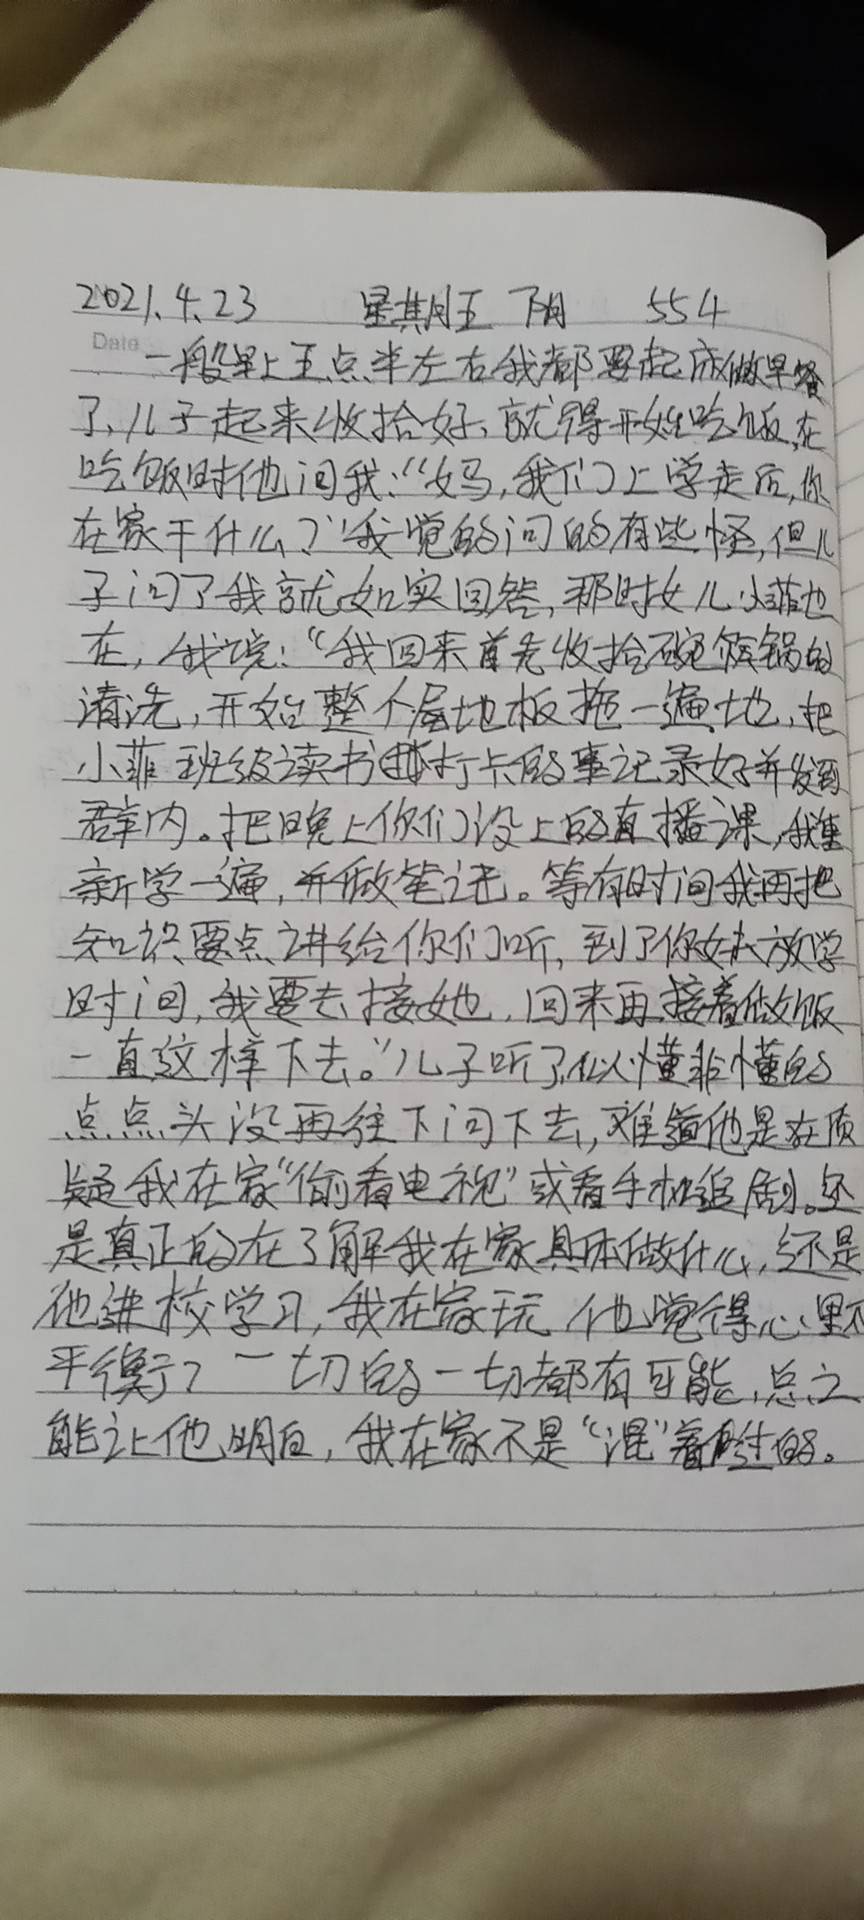 2021.4.23 星期五 阴 554
Date
一般早上五点半左右我都要起床做早餐
了,儿子起来收拾好,就得开始吃饭,在
吃饭时他问我:“妈,我们上学走后,你
在家干什么?”我觉的问的有些怪,但儿
子问了我就如实回答,那时女儿小菲也
在,我说:“我回来首先收拾碗筷锅的
清洗,开始整个屋地板拖一遍地,把
小菲班级读书打卡的事记录好并发到
群内。把晚上你们没上的直播课,我重
新学一遍,并做笔记。等有时间我再把
知识要点讲给你们听,到了你妹放学
时间,我要去接她,回来再接着做饭
一直这样下去。”儿子听了似懂非懂的
点点头没再往下问下去,难道他是在质
疑我在家“偷看电视”或看手机追剧。还
是真正的在了解我在家具体做什么,还是
他进校学习,我在家玩 他觉得心里不
平衡?一切的一切都有可能,总之
能让他明白,我在家不是“混”着过的。